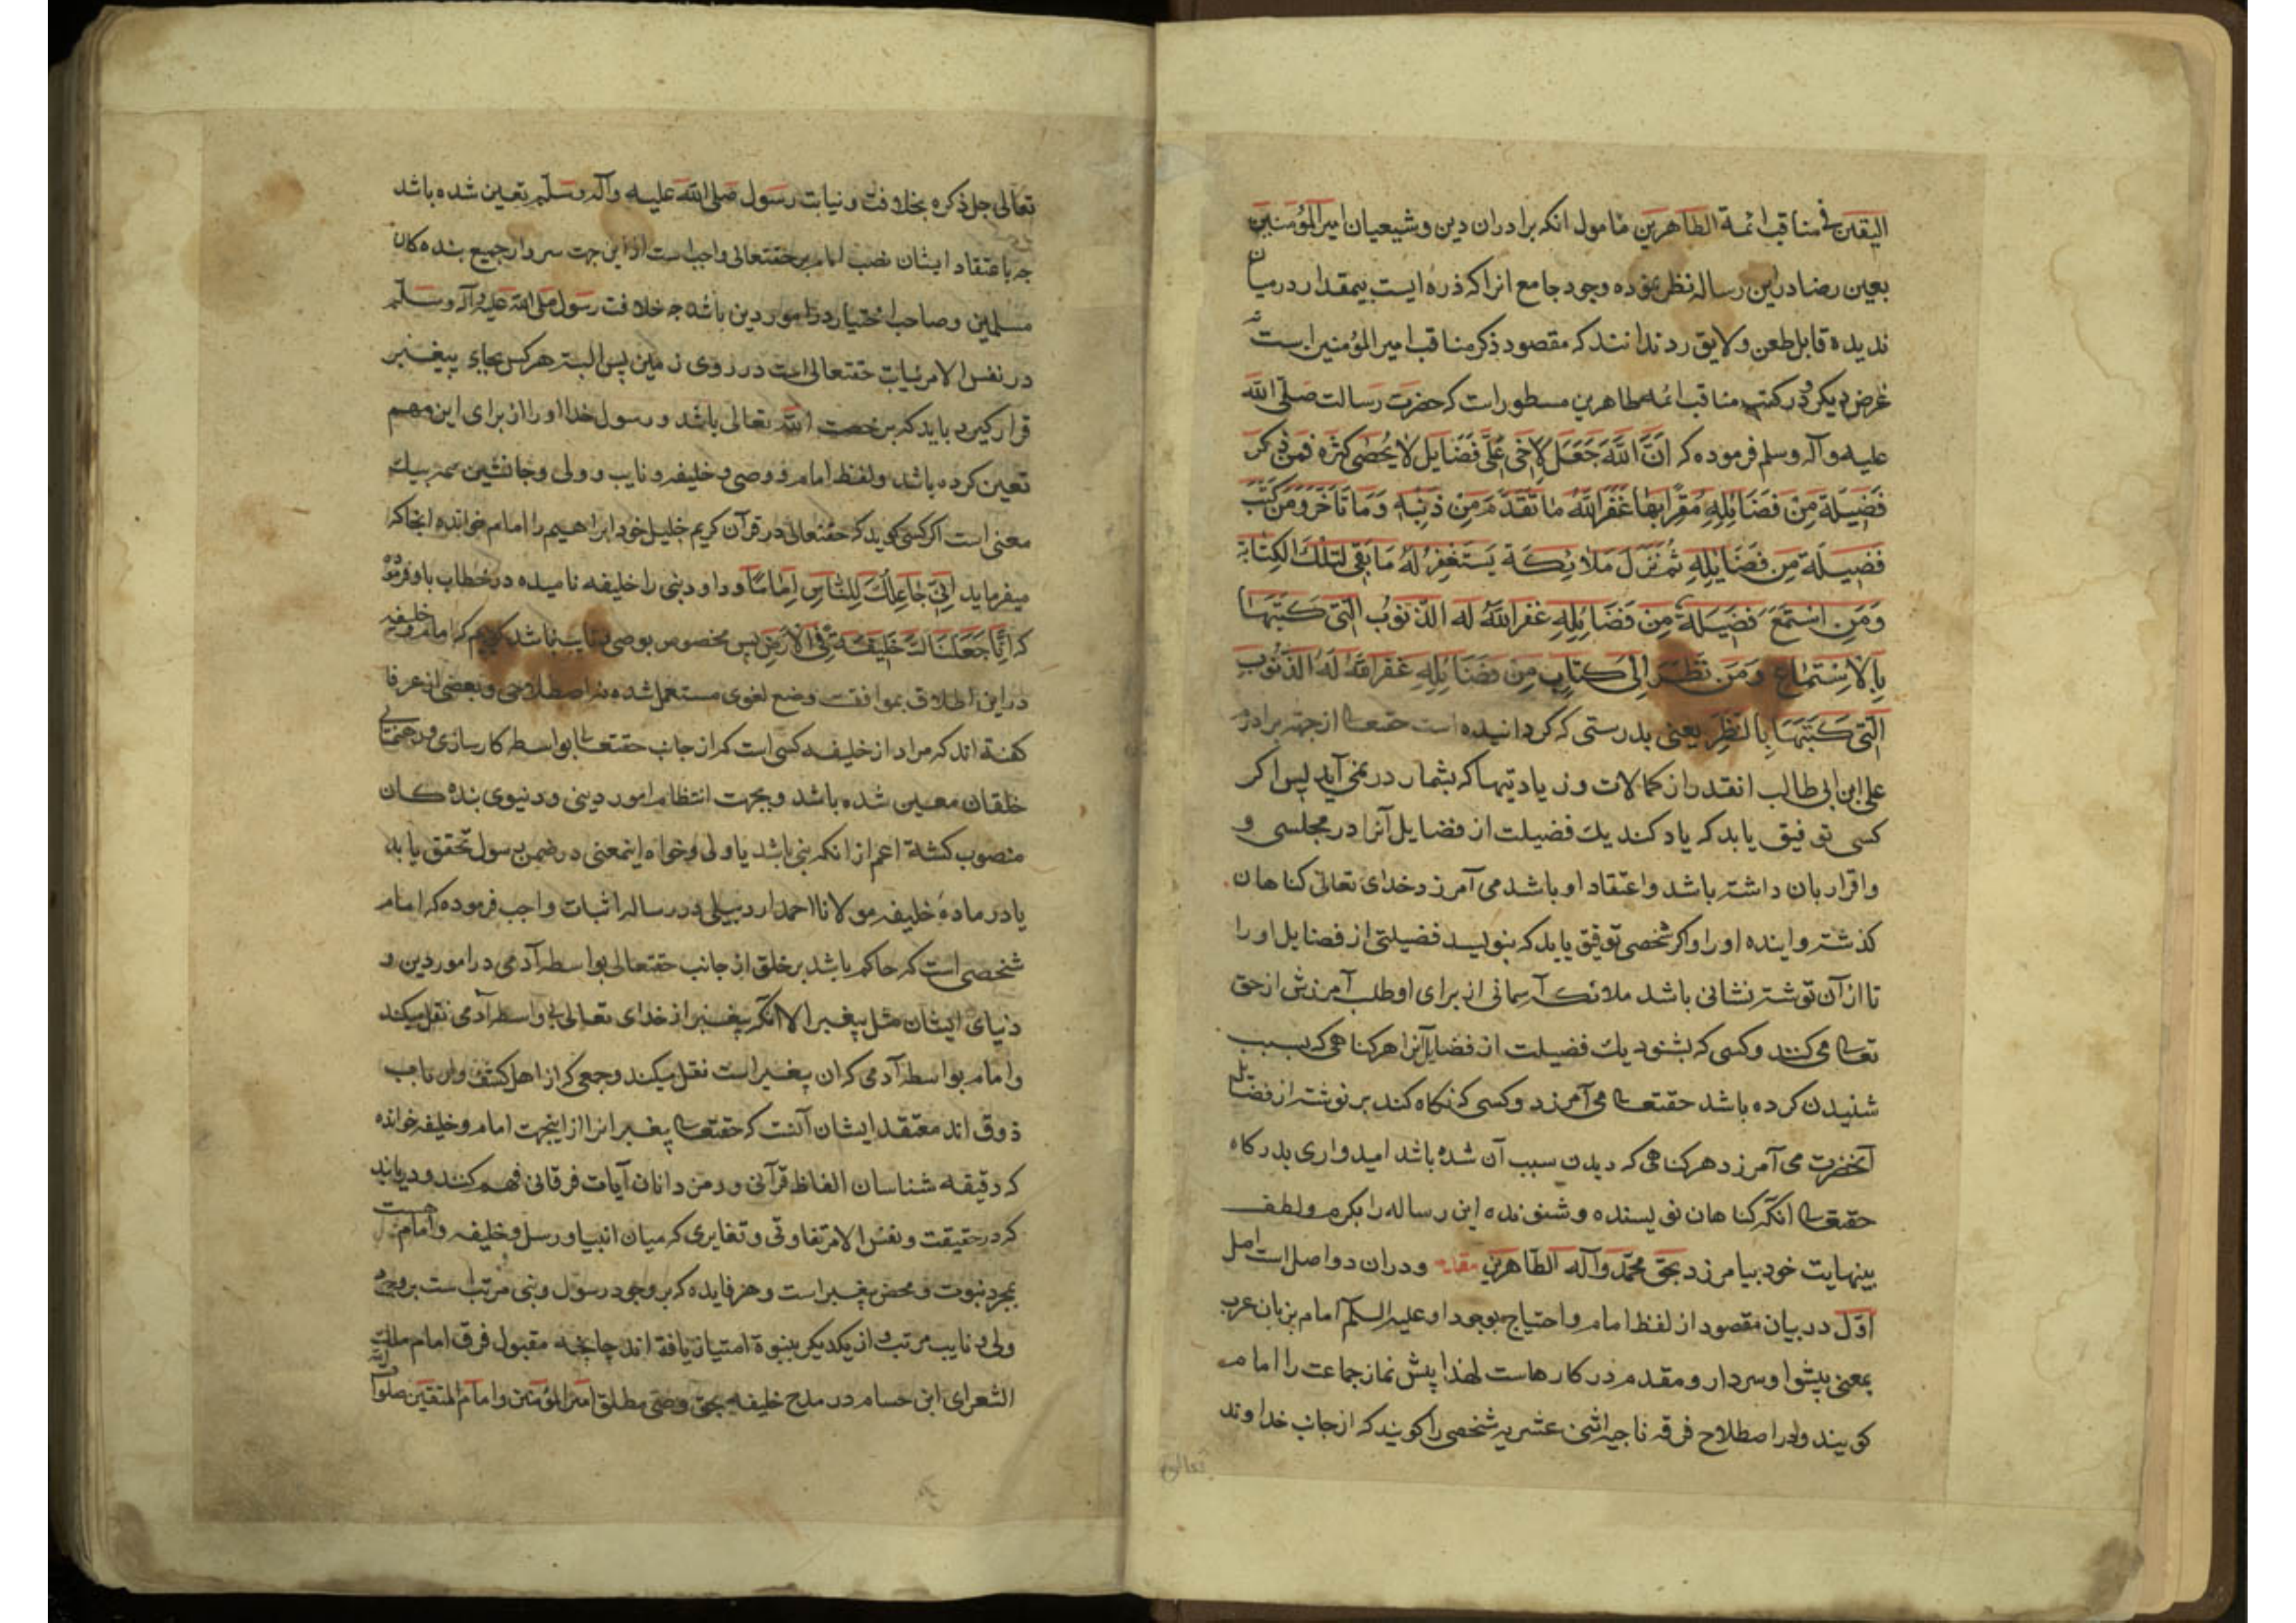 الیقین فی مناقب ائمة الطاهرین مامول انکه برادران دین و شیعیان امیرالمؤمنین
بعین رضا درین رساله نظر نموده وجود جامع انرا که ذره ایست بیمقدار درمیان
ندیده قابل طعن و لایق رد ندانند که مقصود ذکر مناقب امیرالمؤمنین است نه
غرض دیکر و در کتب مناقب ائمه طاهرین مسطور است که حضرت رسالت صلی الله
علیه وآله وسلم فرموده که اِنَّ اللهَ جَعَلَ لِاَخی عَلیٍّ فَضَایِلَ لایُحْصٰی کثرَه فَمَنْ ذکَرَ
فَضِیلَة مِنْ فَضَایِلِهِ مُقِرًّا بِهَا غَفَرَ اللهُ مَا تَقَدَّمَ مِنْ ذَنْبِهِ وَمَا تَأَخَّرَ وَمَنْ کَتَبَ
فَضِیلَة مِن فَضَایِلِهِ ثُمَّ نَزَلَ مَلَائِکَة یَسْتَغْفِرُ لَهُ مَابَقِیَ لِتِلْكَ الْکِتَابَة
وَمَنِ اسْتَمَعَ فَضِیلَةً مِنْ فَضَایِلِهِ غفر اللهُ له الذّنوُبَ الّتی کَتَبَهَا
بِالْاِسْتِمَاعِ وَمَن نَظَرَ اِلٰی کِتَابٍ مِن فَضَایِلِهِ غَفَرَ اللهُ لَهُ الذّنُوبَ
الَّتی کَتَبَهَا بِالنَّظَرِ یعنی بدرستی که کردانیده است حقتعا از جهة برادرم
علی ابن ابی طالب انقدر از کمالات و زیادتیها که بشمار در نمی آید پس اکر
کسی توفیق یابد که یاد کند یك فضیلت از فضایل آنرا در مجلسی و
واقرار بان داشته باشد واعتقاد او باشد می آمرزد خدای تعالی کناهان
کذشته و اینده او را و اکر شخصی توفیق یابد که بنویسد فضیلتی از فضایل او را
تا از آن نوشته نشانی باشد ملائکه آسمانی از برای او طلب آمرزش از حق
تعا می کنند و کسی که بشنود یك فضیلت از فضایل آنرا هر کناهی که بسبب
شنیدن کرده باشد حقتعا می آمرزد و کسی که نکاه کند بر نوشته از فضایل
آنحضرت می آمرزد هر کناهی که دیدن سبب آن شده باشد امیدواری بدرکاه
حقتعا انکه کناهان نویسنده و شنونده این رساله را بکرم و لطف
بینهایت خود بیامرزد بحق محمّد وآله الطّاهرین مقدمه ودران دو اصل است اصل
اوّل در بیان مقصود از لفظ امام و احتیاج بوجود او علیه السلم امام بزبان عرب
بمعنی پیشوا و سردار و مقدم در کارهاست لهذا پیش نماز جماعت را امام
کویند ودر اصطلاح فرقه ناجیه اثنی عشریه شخصی را کویند که از جانب خداوند
تعالی
تعالی جل ذکره بخلافت و نیابت رسول صلی الله علیه وآله وسلّم تعیین شده باشد
چه باعتقاد ایشان نصب امام بر حقتعالی واجب است ازین جهت سروار جمیع بنده کان
مسلمین وصاحب اختیار در امور دین باشد چه خلافت رسول صلی الله علیه وآله وسلّم
در نفس الامر نیابت حقتعالی است در روی زمین پس البته هرکس بجای پیغمبر
قرار کیرد باید که برخصت الله تعالی باشد و رسول خدا او را از برای این مهم
تعین کرده باشد ولفظ امام و وصی و خلیفه و نایب و ولی وجانشین همه بیك
معنی است اکر کسی کوید که حقتعالی در قرآن کریم خلیل خود ابراهیم را امام خوانده انجا که
میفرماید اِنّی جَاعِلُكَ لِلنَّاسِ اِمَامًا و داود نبی را خلیفه نامیده در خطاب باو فرموده
که اِنَّا جَعَلْنَاكَ خَلیفَةً فِی الْاَرْضِ پس مخصوص بوصی و نایب نباشد کویم که امام و خلیفه
دراین اطلاق بموافقت وضع لغوی مستعمل شده نه اصطلاحی و بعضی از عرفا
کفته اند که مراد از خلیفه کسی است که از جانب حقتعا بواسطه کارسازی ورهنمائی
خلقان معین شده باشد و بجهت انتظام امور دینی و دنیوی بنده کان
منصوب کشته اعم از انکه نبی باشد یا ولی و خواه اینمعنی در ضمن رسول تحقق یابد
یا در ماده خلیفه مولانا احمد اردبیلی در رساله اثبات واجب فرموده که امام
شخصی است که حاکم باشد بر خلق از جانب حقتعالی بواسطه آدمی در امور دین و
دنیای ایشان مثل پیغمبر الا انکه پیغمبر از خدای تعالی بی واسطه آدمی نقل میکند
وامام بواسطه آدمی که ان پیغمبر است نقل میکند وجمعی که از اهل کشف و ارباب
ذوق اند معتقد ایشان آنست که حقتعا پیغمبرانرا از اینجهت امام و خلیفه خوانده
که دقیقه شناسان الفاظ قرآنی ورمز دانان آیات فرقانی فهم کنند و دریابند
که در حقیقت ونفس الامر تفاوتی و تغایری که میان انبیا ورسل وخلیفه وامام هست
بمجرد نبوت و محض پیغمبر است وهر فایده که بر وجود رسول و نبی مرتب است بر وجود
ولی و نایب مرتب و از یکدیکر بنبوة امتیاز یافته اند چنانچه مقبول فرق امام ملك
الشعرای ابن حسام در مدح خلیفه بحق وصی مطلق امیرالمؤمنین وامام المتقین صلوات الله